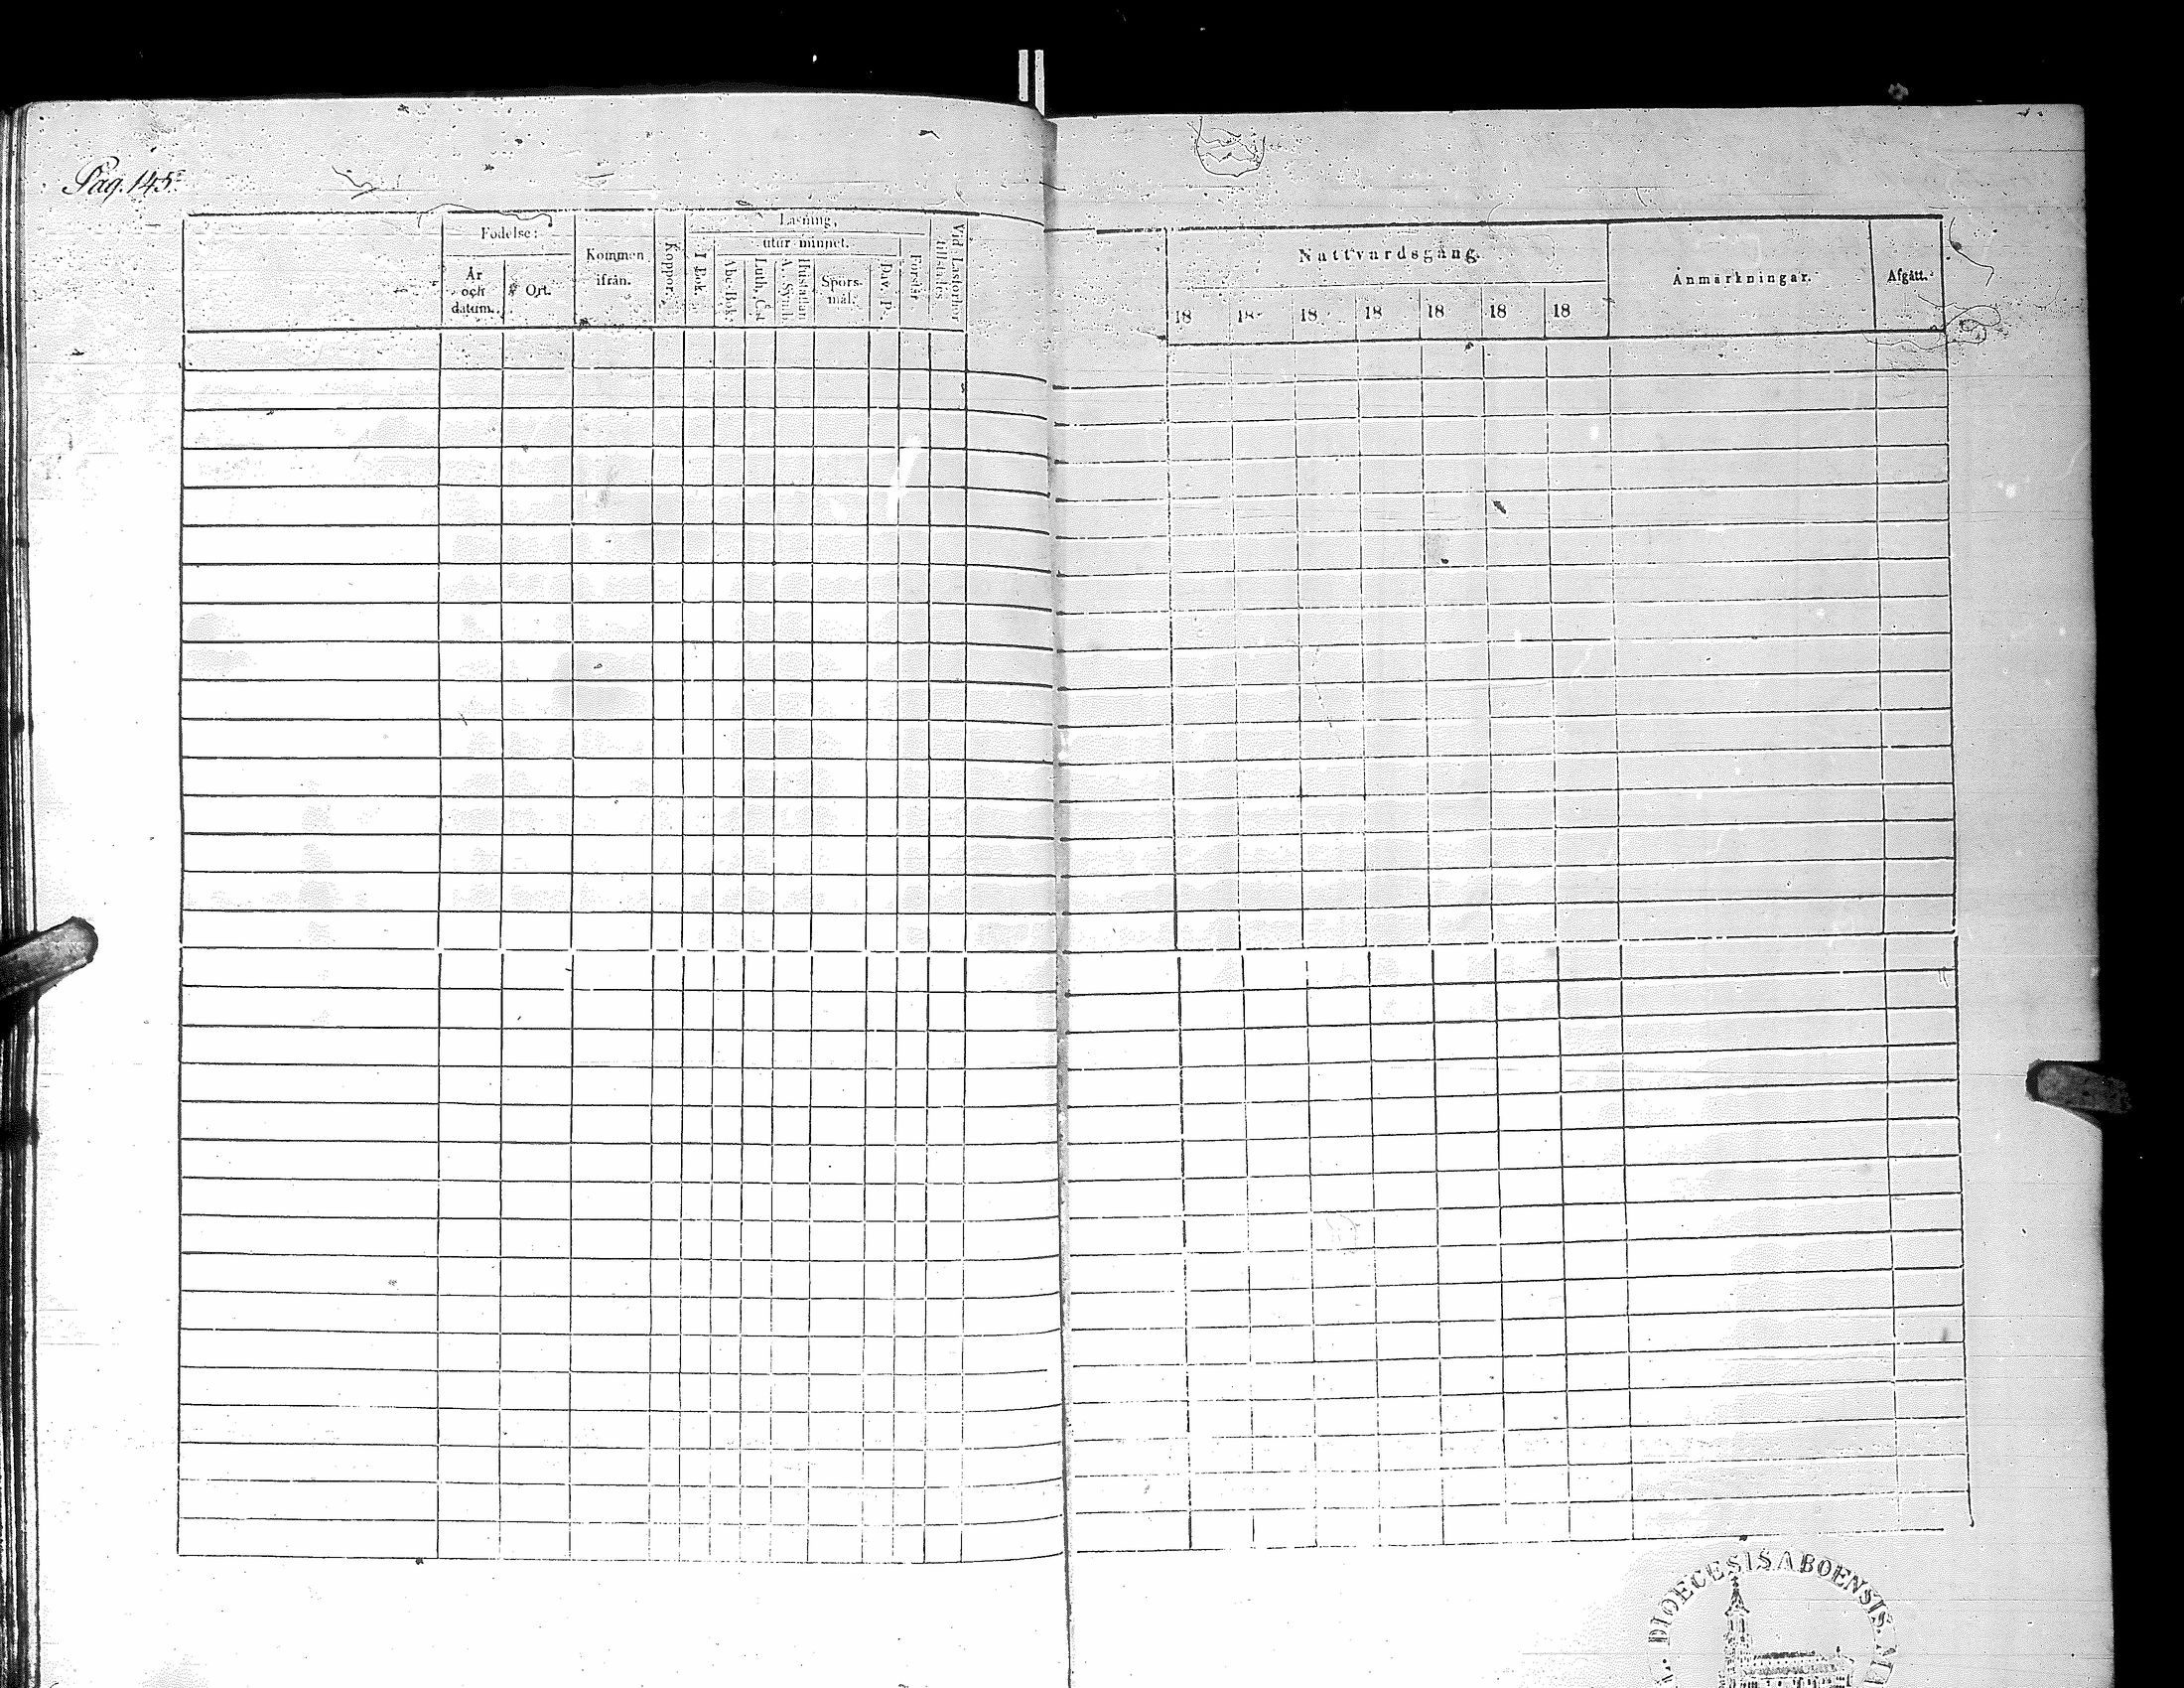 Pag. 145.
Födelse:
År och datum.
Ort.
Kommen ifrån.
Koppor.
Läsning,
utur minnet.
I Bok.
Abc-Bok.
Luth. C.
Hustaflan
A. Symb.
Spörs-
mål.
Dav. P.
Förstår
Vid Läsförhör
tillstädes
Nattvardsgång.
18 18 18 18 18 18 18
Anmärkningar.
Afgått.
DIOECESIS ABOENSIS.